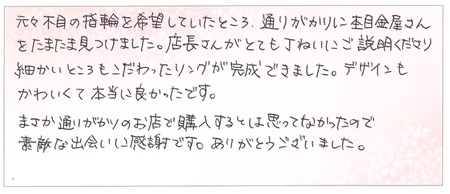 元々木目の指輪を希望していたところ、通りがかりに杢目金屋さん
をたまたま見つけました。店長さんがとても丁ねいにご説明くださり
細かいところもこだわったリングが完成できました。デザインも
かわいくて本当に良かったです。
まさか通りがかりのお店で購入するとは思ってなかったので
素敵な出会いに感謝です。ありがとうございました。